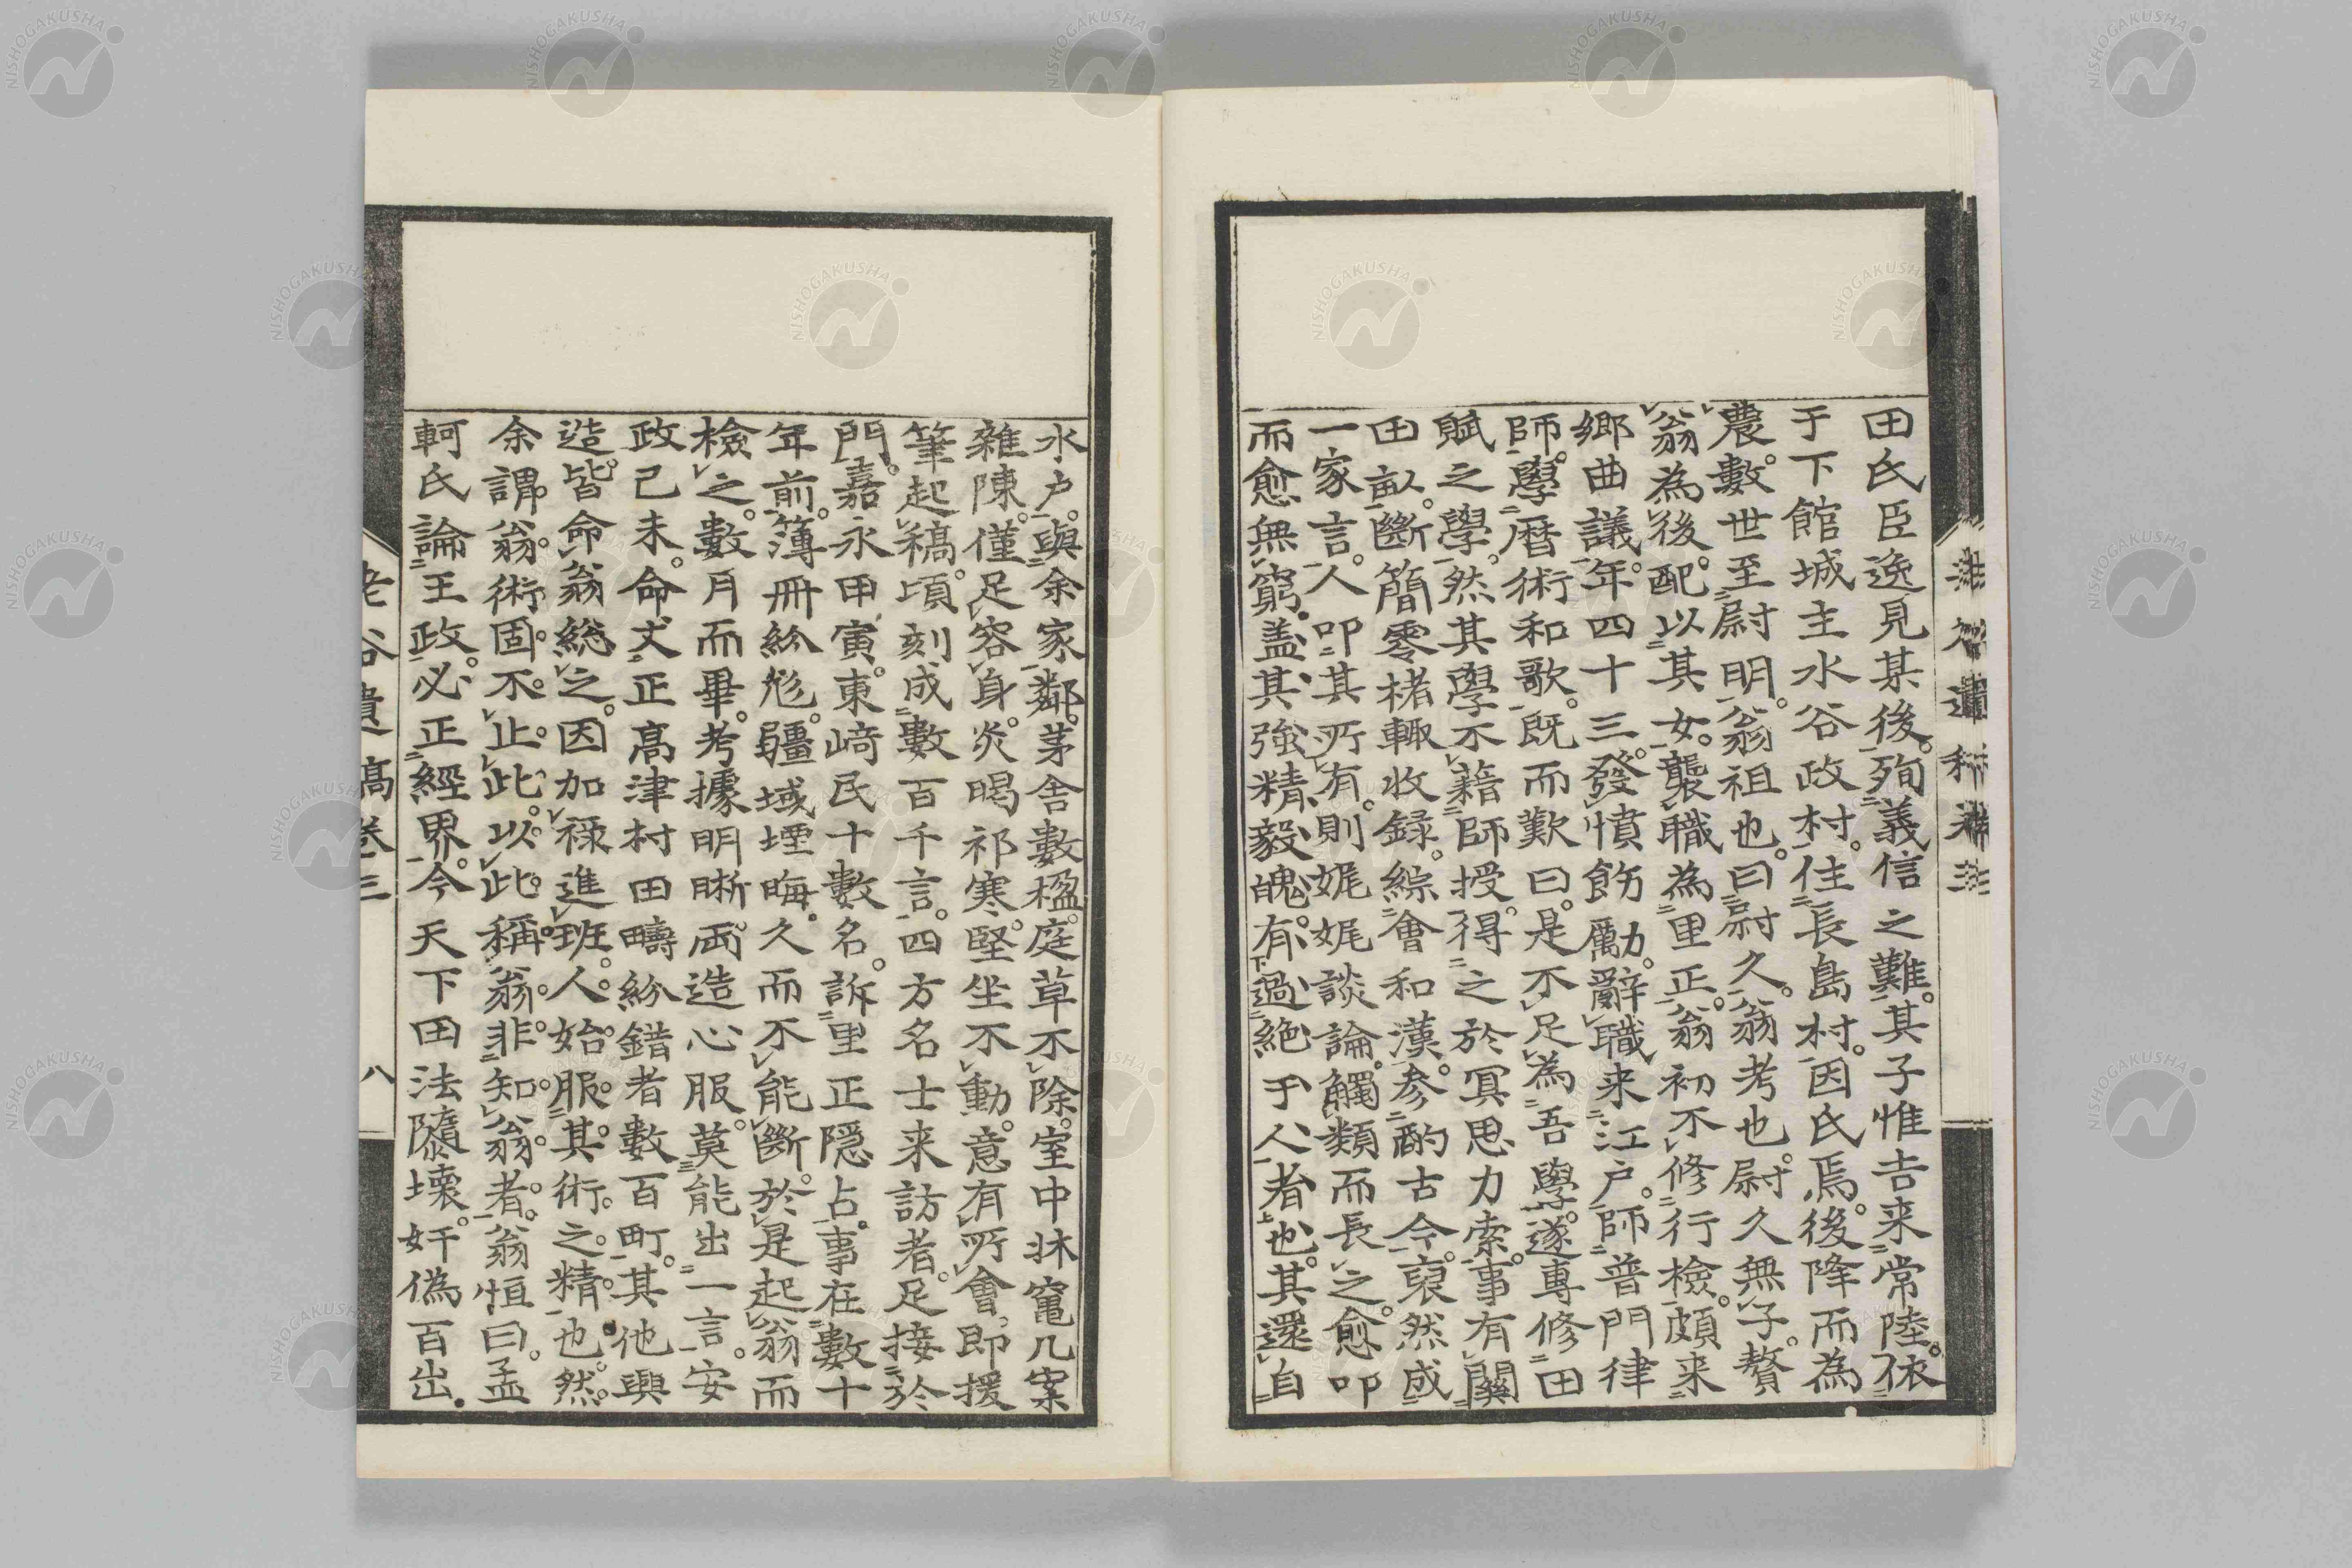 田氏臣逸見某後。殉義信之難。其子惟吉来常陸。依
于下館城主水谷政村。住長島村。因氏焉。後降而為
農。數世至尉明。翁祖也。曰尉久。翁考也。尉久無子。贅
翁為後。配以其女。襲職為里正。翁初不修行檢。頗来
郷曲議。年四十三。發憤飭勵。辭職来江戸。師普門律
師。學暦術和歌。既而歎曰。是不足為吾學。遂專修田
賦之學。然其學不藉師授。得之於冥思力索。事有關
田畝。斷簡零楮輙收録。綜會和漢。参酌古今。裒然成
一家言。人叩其所有。則娓娓談論。觸類而長之。愈叩
而愈無窮。盖其強精毅魄。有過絶于人者也。其還自
水戸。與余家鄰。茅舎數楹。庭草不除。室中牀竃几案
雜陳。僅足容身。炎暍祁寒。堅坐不動。意有所會。即援
筆起稿。頃刻成數百千言。四方名士来訪者。足接於
門。嘉永甲寅。東﨑民十數名。訴里正隠占。事在數十
年前。簿冊紛尨。疆域堙晦。久而不能斷。於是起翁而
檢之。數月而畢。考據明晰。両造心服。莫能出一言。安
政己未。命丈正高津村田疇紛錯者數百町。其他興
造。皆命翁総之。因加禄進班。人始服其術之精也。然
余謂翁術固不止此。以此稱翁。非知翁者。翁恒曰。孟
軻氏論王政。必正經界。今天下田法隳壊。奸偽百出。
遺高巻三
八
NISHOGAKUSHA